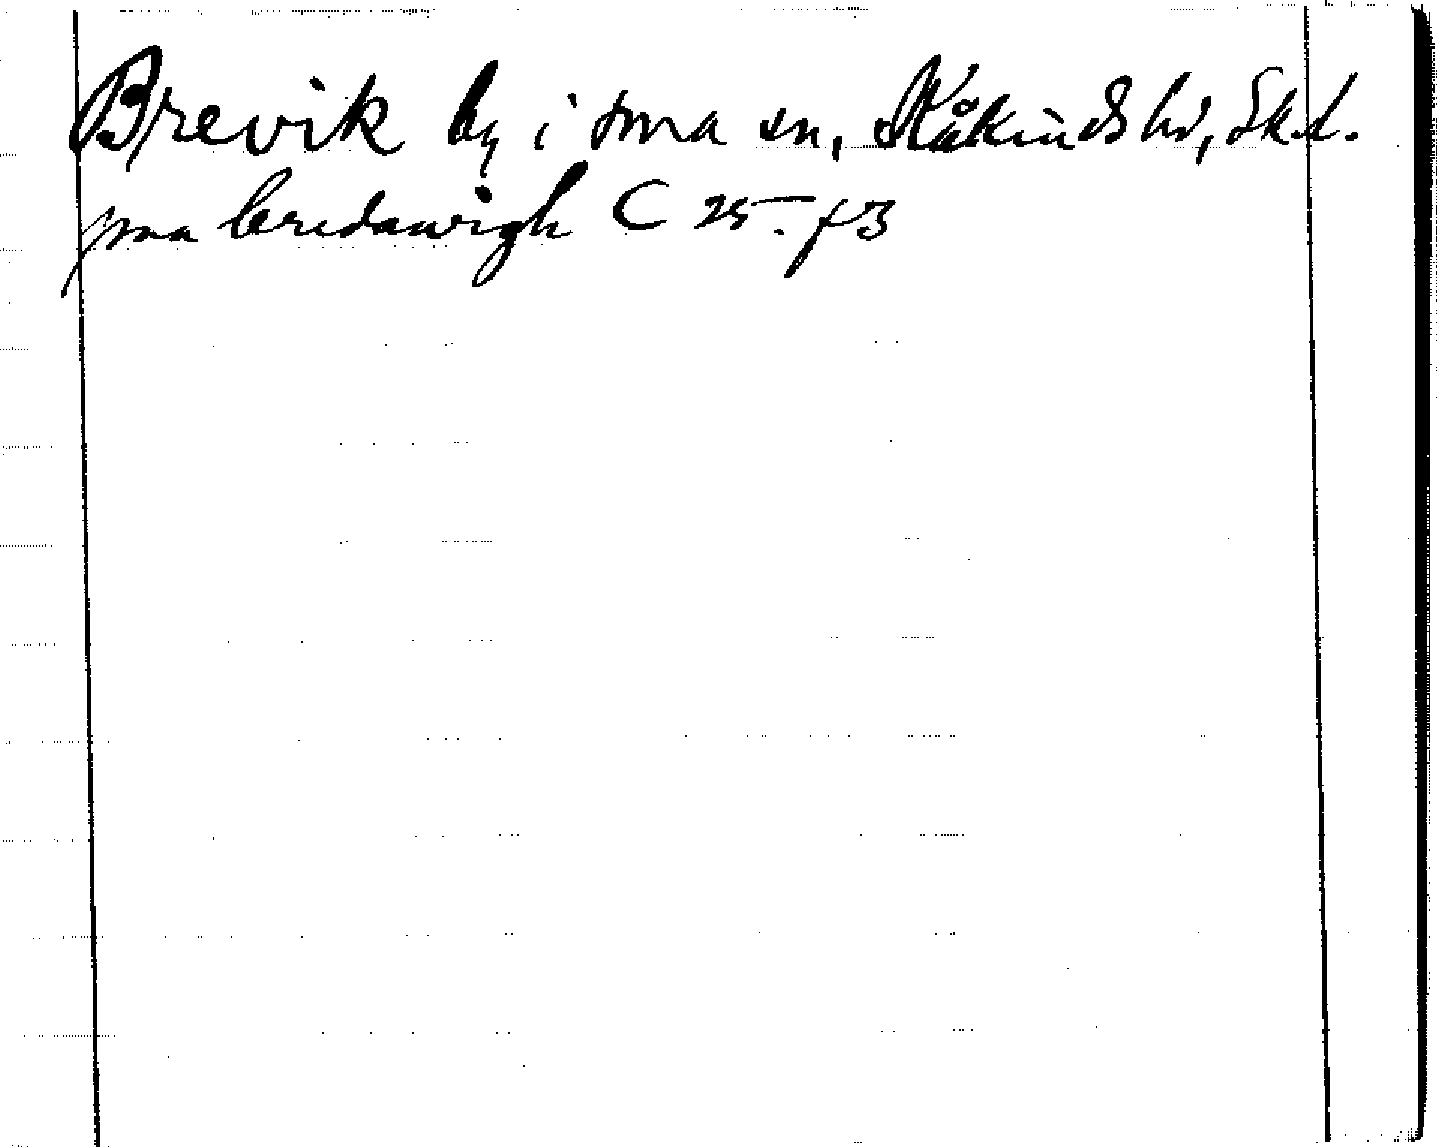 Brevik by i sma sn, Kåkinds hd, Sk.l.
jnna bredawigh C 25. f 3